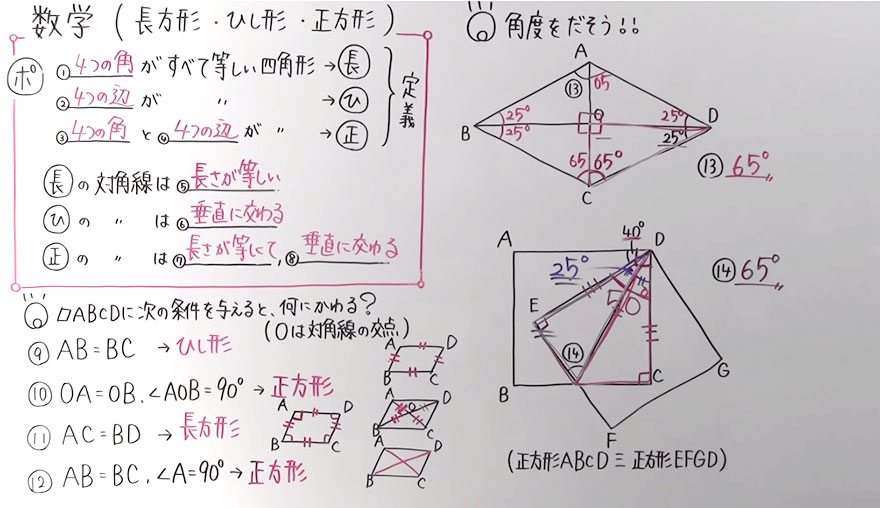 数学 ( 長方形・ひし形・正方形 )
ポ
① 4つの角 が すべて等しい四角形 → 長
② 4つの辺 が 〃 → ひ
③ 4つの角 と ④ 4つの辺 が 〃 → 正
定義
長 の 対角線は ⑤ 長さが等しい
ひ の 〃 は ⑥ 垂直に交わる
正 の 〃 は ⑦ 長さが等しくて , ⑧ 垂直に交わる
▱ABCDに次の条件を与えると、何にかわる?
(Oは対角線の交点)
⑨ AB=BC → ひし形
⑩ OA=OB、∠AOB=90° → 正方形
⑪ AC=BD → 長方形
⑫ AB=BC、∠A=90° → 正方形
A D
B C
A D
B C
A D
O
B C
A D
B C
角度をだそう!!
A
⑬ 65
B 25° 25° O 25° 25° D
65 65°
C
⑬ 65°
A 40° D
25°
50
E
⑭
B C G
F
⑭ 65°
(正方形ABCD ≡ 正方形EFGD)